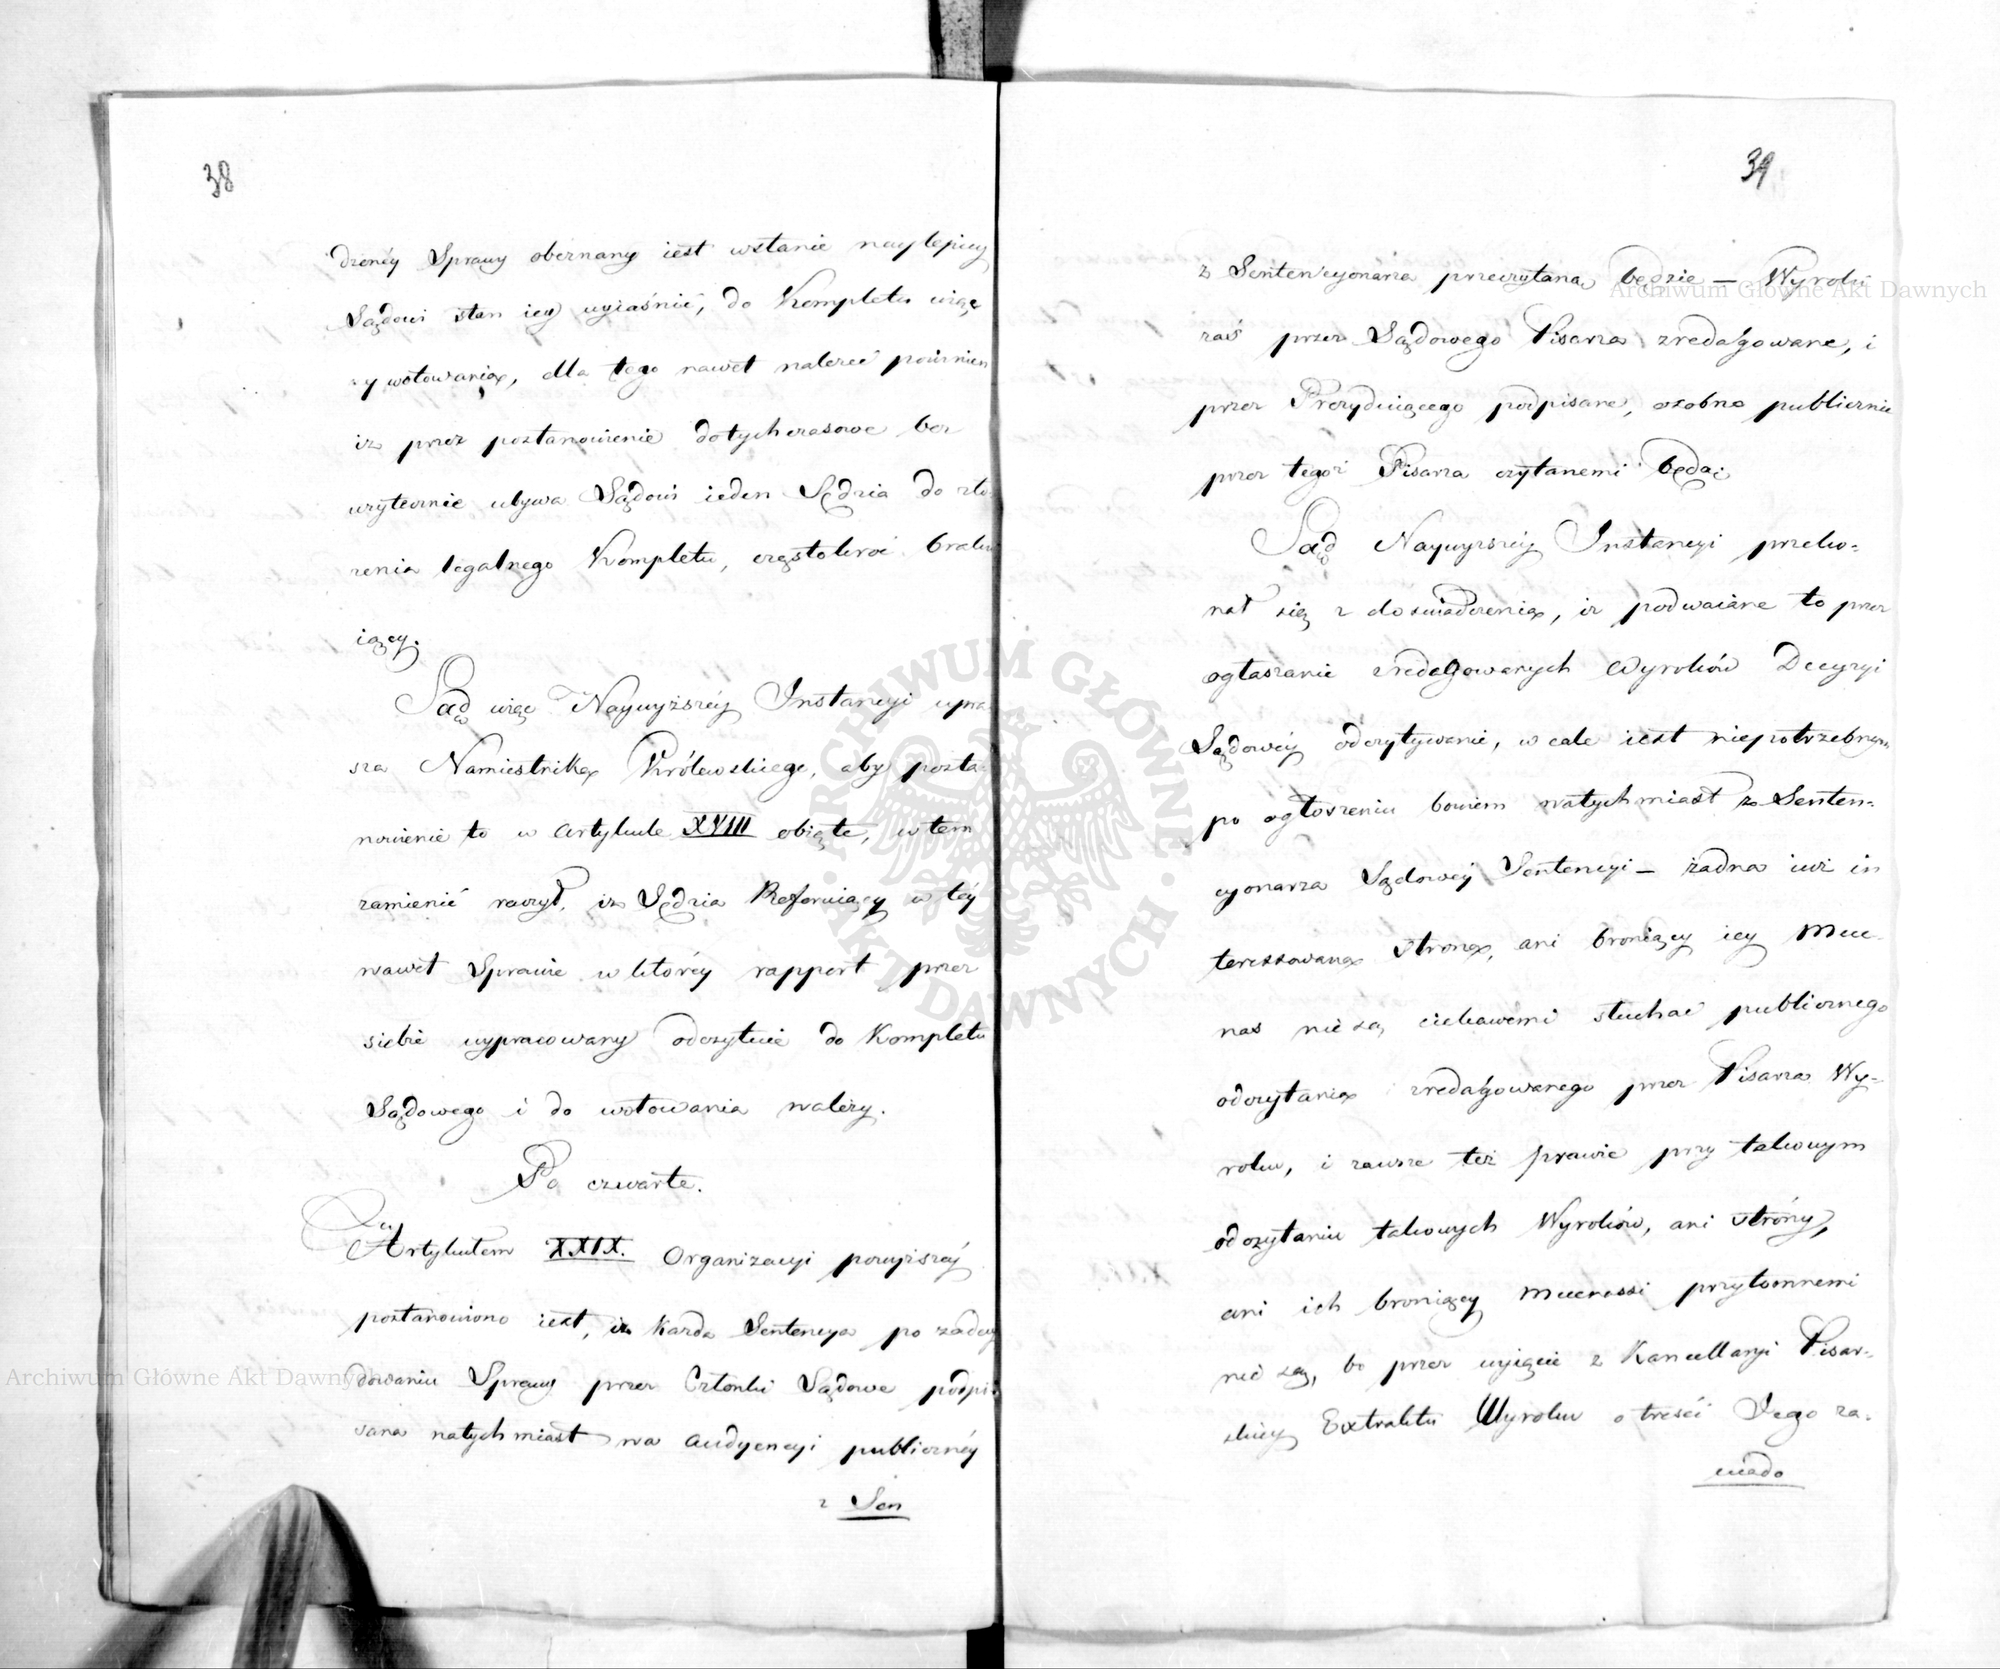 38
dzonéy Sprawy obeznany iest wstanie naylepiey
Sądowi stan iey wyiaśnić, do Kompletu więc
y wotowania, dla tego nawet należeć powinien
iż przez postanowienie dotychczasowe bez
użytecznie ubywa Sądowi ieden Sędzia do zło-
żenia legalnego Kompletu, częstokroć braku
iący.
Sąd więc Naywyższéy Instancyi upra-
sza Namiestnika Królewskiego, aby posta-
nowienie to w Artykule XVIII obięte, w tem
zamienić raczył, iż Sędzia Referuiący w téy
nawet Sprawie w któréy rapport przez
siebie wypracowany odczytuie do Kompletu
Sądowego i do wotowania należy.
Po czwarte.
Artykułem XXIX. Organizacyi powyższéy
postanowiono iest, iż każda Sentencya po zadecy
dowaniu Sprawy przez Członki Sądowe podpi-
sana natychmiast na Audyencyi publicznéy
z Sen
39
z Sentencyonarza przeczytana będzie — Wyroki
zaś przez Sądowego Pisarza zredagowane, i
przez Prezyduiącego podpisane, osobno publicznie
przez tegoż Pisarza czytanemi będą:
Sąd Naywyższéy Instancyi przeko-
nał się z doświadczenia, iż podwaiane to przez
ogłaszanie zredagowanych Wyroków Decyzyi
Sądowéy odczytywanie, w cale iest niepotrzebnym
po ogłoszeniu bowiem natychmiast z Senten-
cyonarza Sądowéy Sentencyi — żadna iuż in
teressowana strona, ani broniący iey Mece-
nas nie są ciekawemi słuchać publicznego
odczytania zredagowanego przez Pisarza Wy-
roku, i zawsze też prawie przy takowym
odczytaniu takowych Wyroków, ani strony,
ani ich broniący Mecenassi przytomnemi
nie są, bo przez wyięcie z Kancellaryi Pisar-
skiey Extraktu Wyroku o treści Jego za-
wiado
Archiwum Główne Akt Dawnych
Archiwum Główne Akt Dawnych
ARCHIWUM GŁÓWNE AKT DAWNYCH